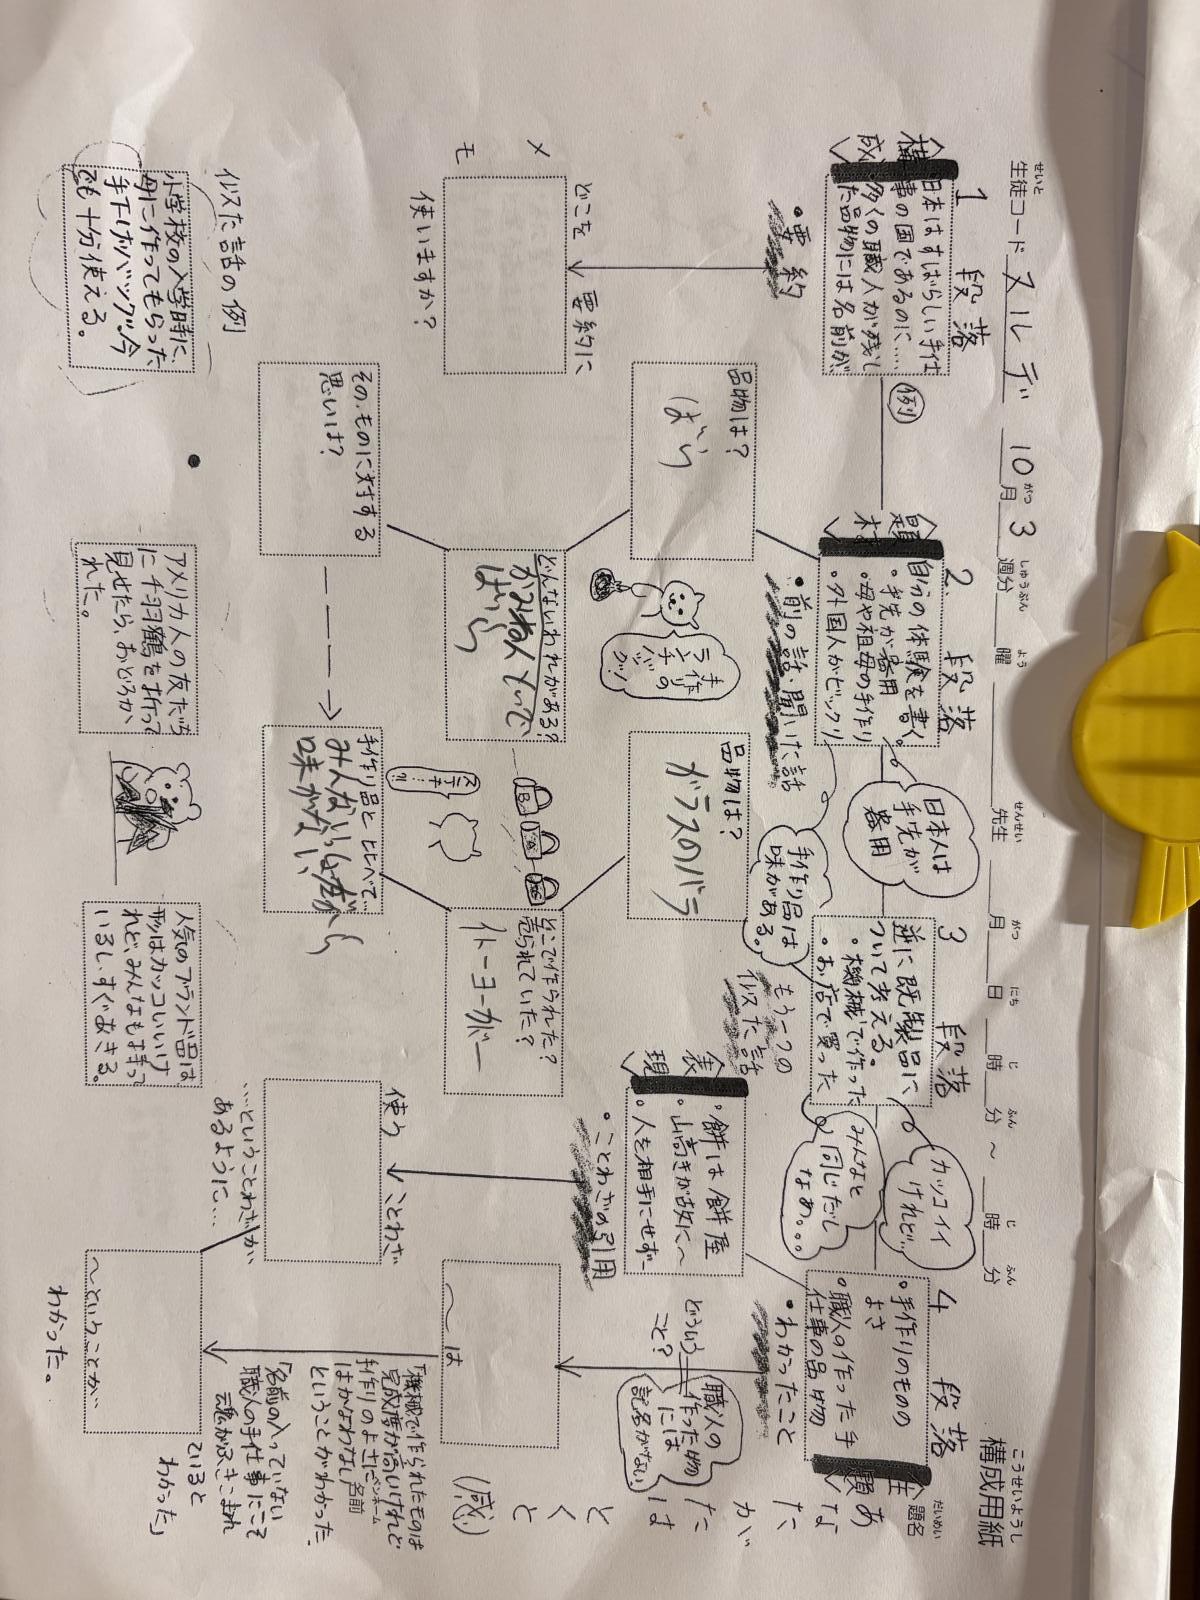 構成用紙
生徒コード ヌルデ 10月3週分 曜 先生 月 日 時 分 ～ 時 分
せいと
がつ
しゅうぶん
よう
せんせい
がつ
にち
じ
ふん
じ
ふん
こうせいようし
だいめい
題名
1 段落
〈構成〉
日本はすばらしい手仕
事の国であるのに…
多くの職人が残し
た品物には名前が
・要約
どこを 要約に
使いますか?
メモ
似た話の例
小学校の入学時に、
母に作ってもらった
手下げバックが今
でも十分使える。
例
2. 段落
〈題材〉
自分の体験を書く。
・手先が器用
・母や祖母の手作り
・外国人がビックリ
・前の話・聞いた話
品物は?
ばら
どんないわれがある?
ばら
その、ものに対する
思いは?
手作りの
アメリカ人の友だち
に千羽鶴を折って
見せたら、おどろか
れた。
日本人は
手先が
器用
手作り品は
味がある。
3 段落
逆に既製品に
ついて考える。
・機械で作った
・お店で買った
もう一つの
似た話
品物は?
ガラスのバラ
どこで作られた?
売られていた?
イトーヨーカドー
手作り品と比べて、
味がない
人気のブランド品は
形はカッコいいけ
れど、みんなもよ持って
いるし、すぐあきる。
カッコイイ
けれど…
みんなと
同じだし
なぁ。。。
〈表現〉
・餅は餅屋
・山高きが故に～
・人を相手にせず～
・ことわざの引用
使う ことわざ
…ということわざが、
あるように…
4 段落
・手作りのものの
よさ
・職人の作った手
仕事の品物
・わかったこと
どういう
こと?
職人の
作った物
には
記名がない
～は
「機械で作られたものは
完成度が高いけれど
手作りのよさには
かなわない
ということがわかった。
「名前の入っていない
職人の手仕事にこそ
魂がふきこまれ
ていると
わかった」
～ということが…
わかった。
あなたがたはとくと
(感)